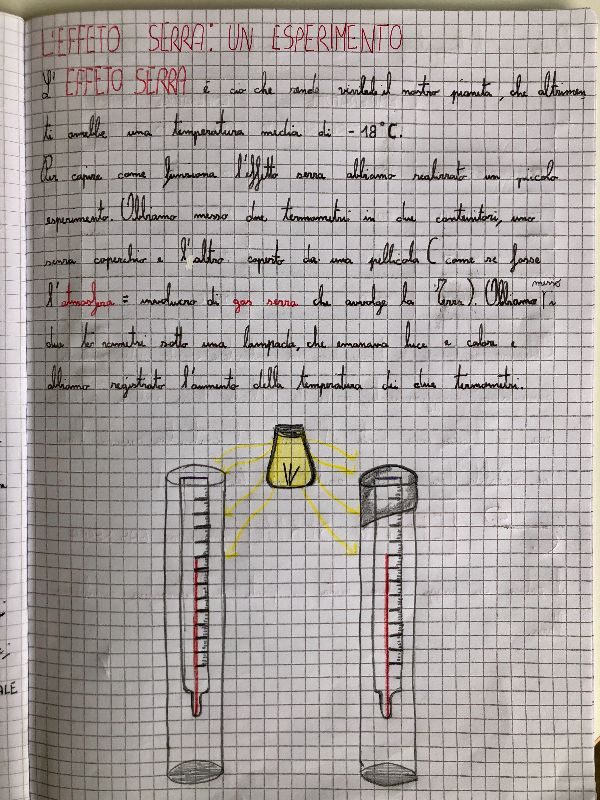 L'EFFETO SERRA: UN ESPERIMENTO
L'EFFETO SERRA è ciò che rende vivibile il nostro pianeta, che altrimen
ti avrebbe una temperatura media di -18°C.
Per capire come funziona l'effetto serra abbiamo realizzato un piccolo
esperimento. Abbiamo messo due termometri in due contenitori, uno
senza coperchio e l'altro coperto da una pellicola (come se fosse
l'atmosfera = involucro di gas serra che avvolge la Terra). Abbiamo messo i
due termometri sotto una lampada, che emanava luce e calore e
abbiamo registrato l'aumento della temperatura dei due termometri.
ALE